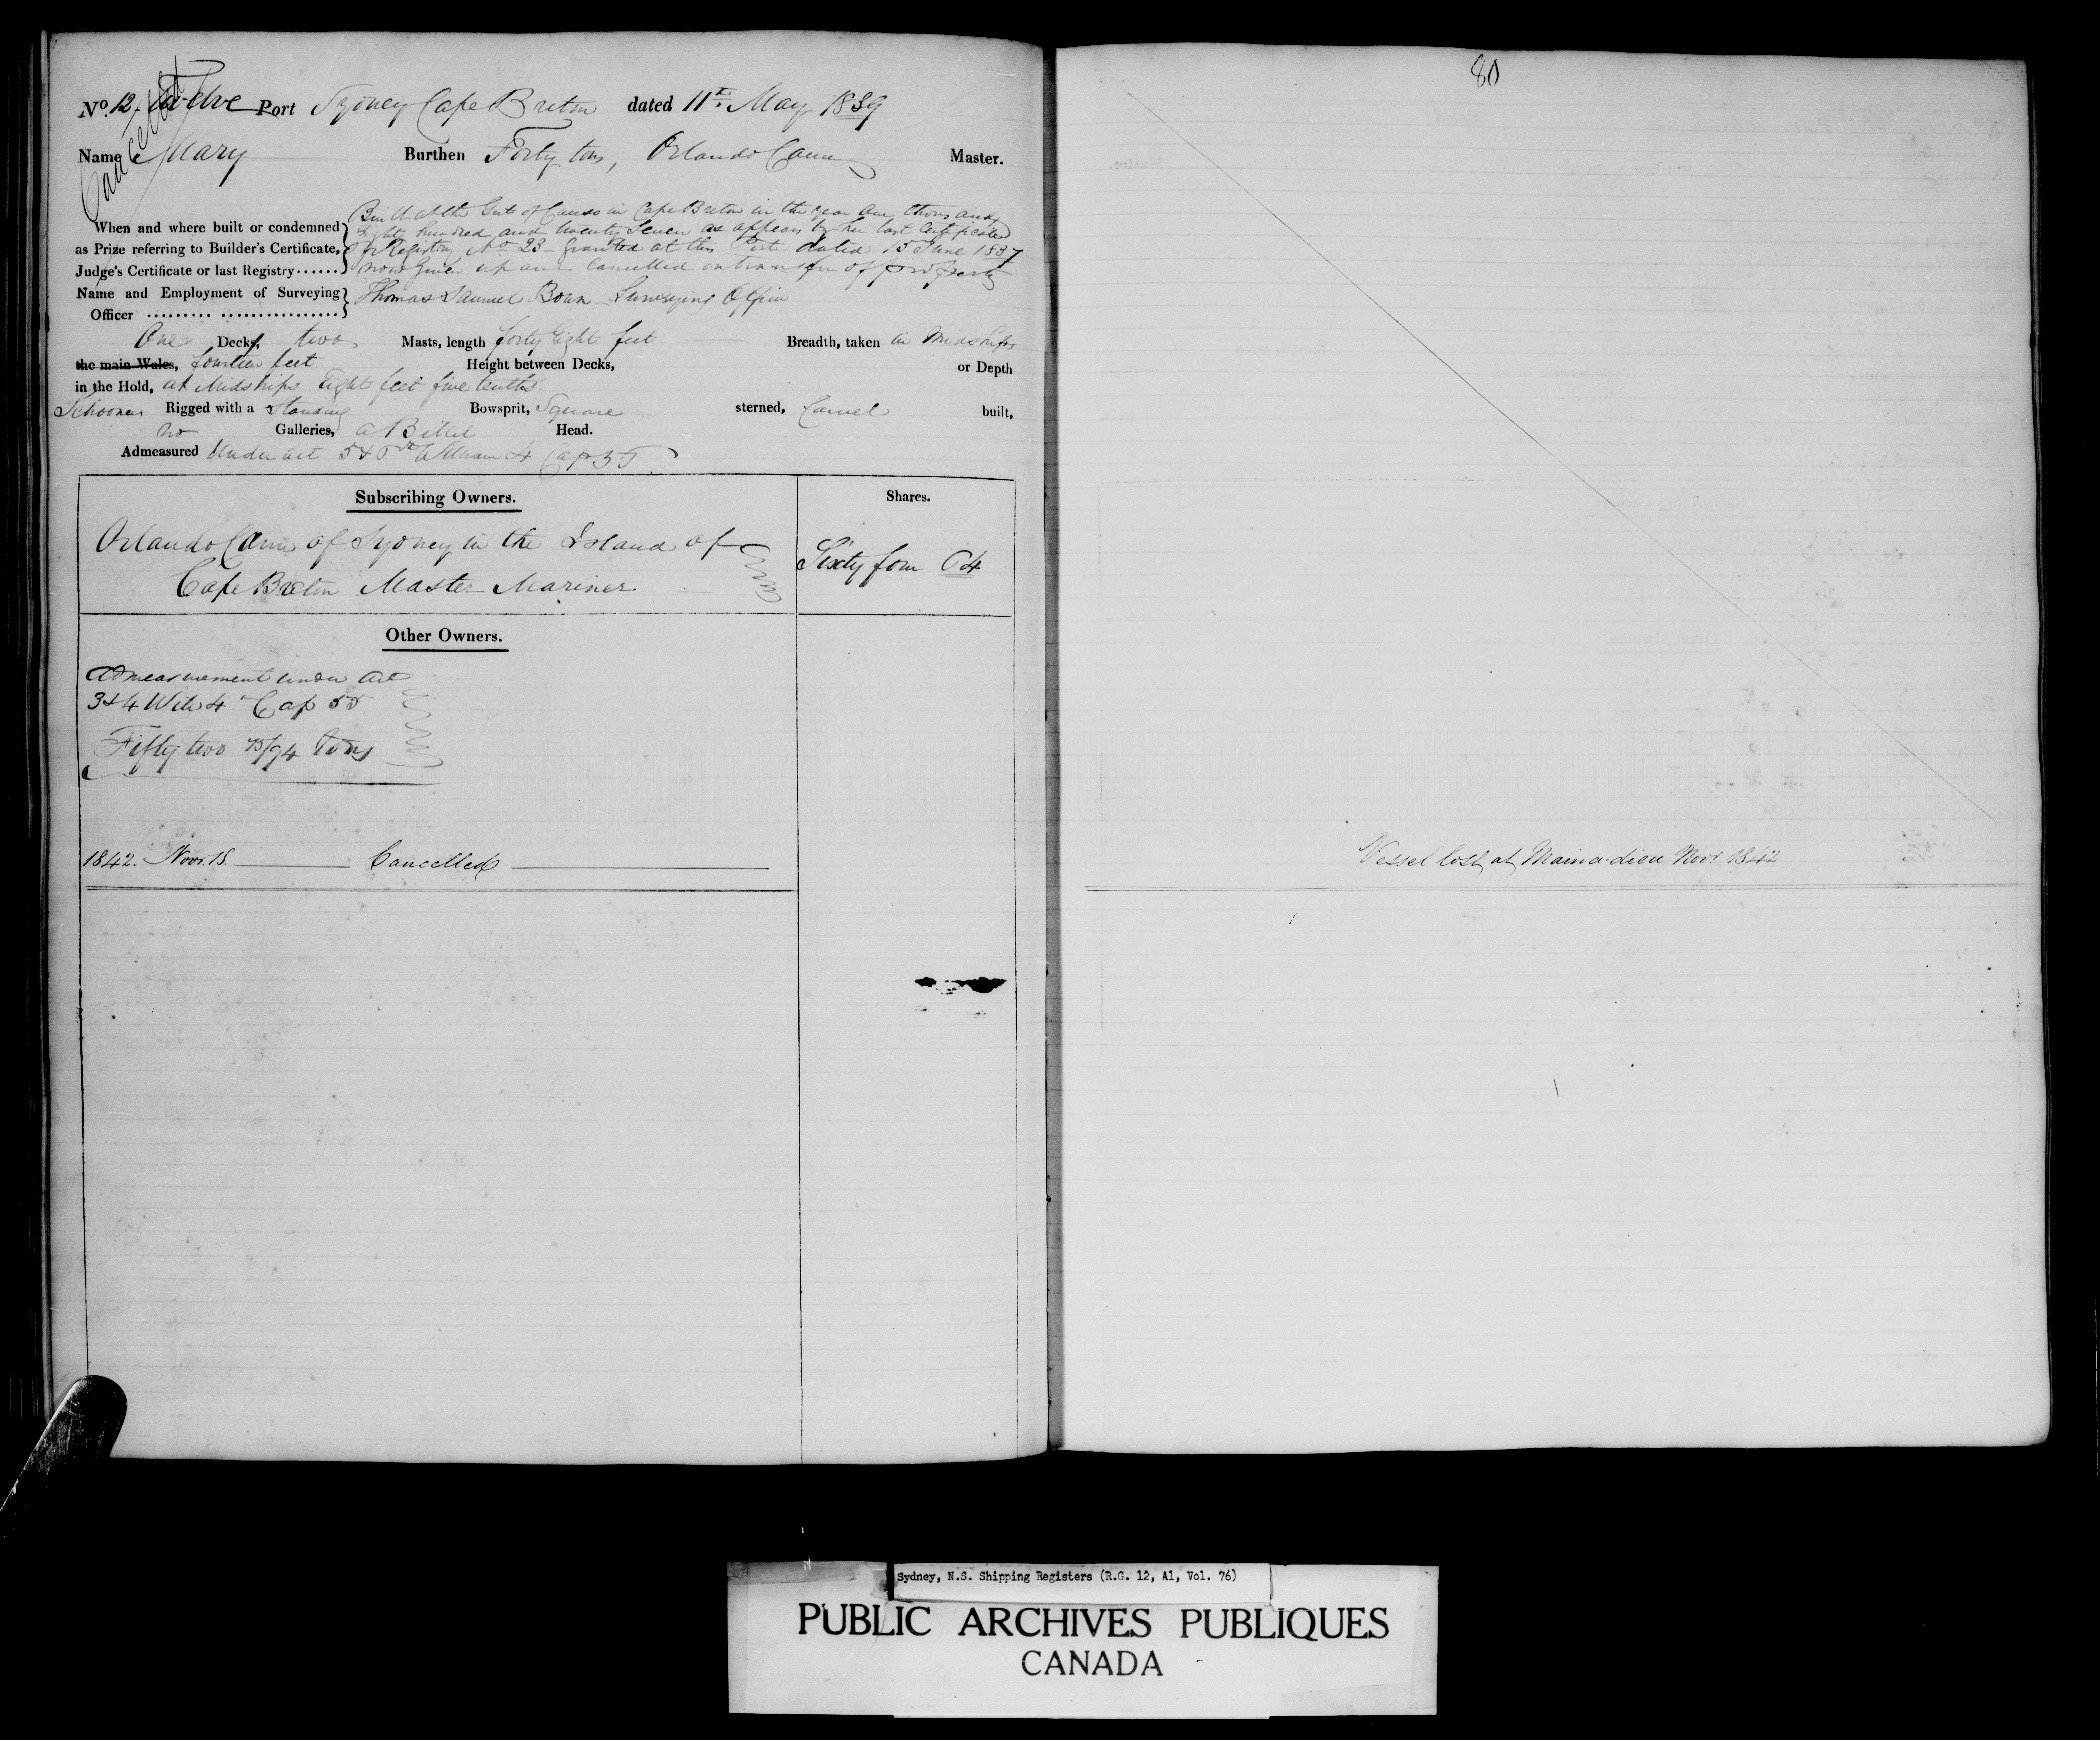 Cancelled
No. 12. Twelve Port Sydney Cape Breton dated 11th May 1839
Name Mary Burthen Forty tons, Orlando Cann Master.
Built at the Gut of Canso in Cape Breton in the year One thousand
When and where built or condemned eight hundred and twenty seven as appears by her last Certificate
as Prize referring to Builder's Certificate, of Registry No 23 - Granted at this Port dated 15 June 1837
Judge's Certificate or last Registry...... now given up and cancelled on transfer of property
Name and Employment of Surveying Thomas Samuel Bown Surveying Officer
Officer
One Decks, two Masts, length forty eight feet Breadth, taken in Midships
the main Wales, fourteen feet Height between Decks, or Depth
in the Hold, at Midships Eight feet five tenths
Schooner Rigged with a Standing Bowsprit, Square sterned, Carvel built,
no Galleries, a Billet Head.
Admeasured Under act 5 & 6 William 4 Cap
Subscribing Owners. Shares.
Orlando Cann of Sydney in the Island of
Cape Breton Master Mariner Sixty four 64
Other Owners.
Admeasurement under Act
3 & 4 Wil 4 Cap 55
Fifty two /94 tons
1842. Novr. 18. Cancelled
80
Vessel lost at Main a-dieu Novr 1842
Sydney, N.S. Shipping Registers (R.G. 12, A1, Vol. 76)
PUBLIC ARCHIVES PUBLIQUES
CANADA